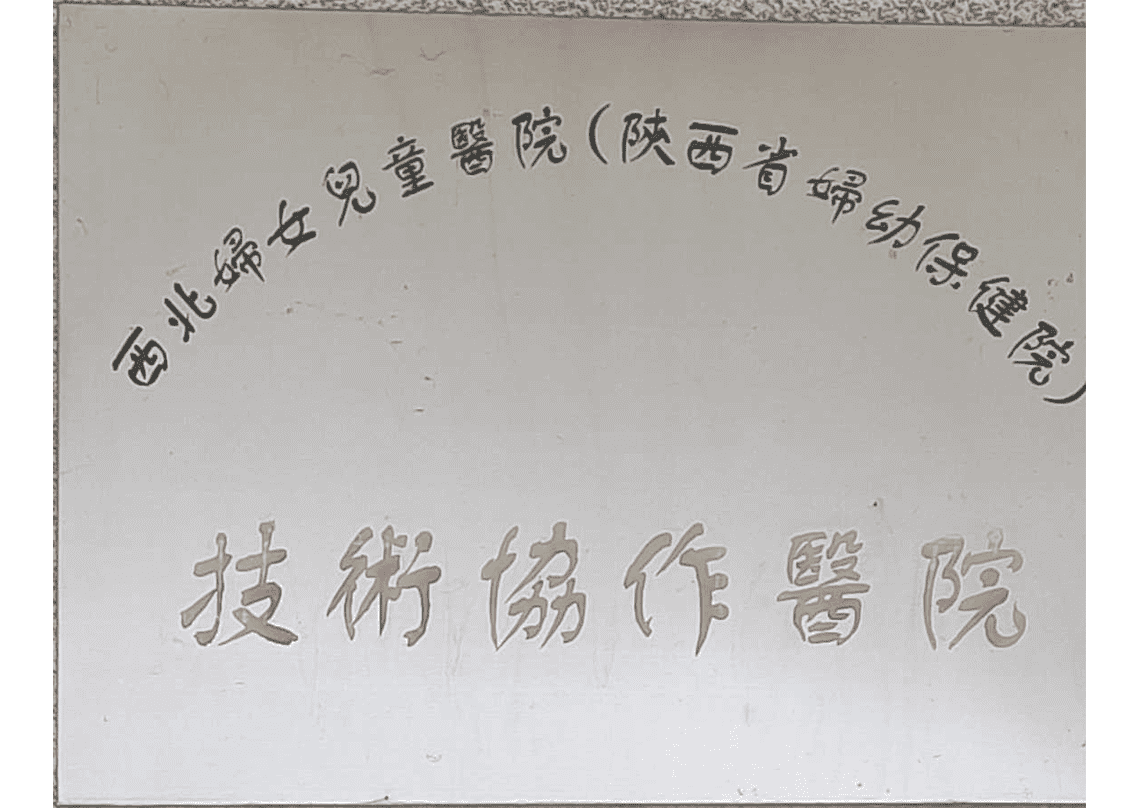 西北婦女兒童醫院(陝西省婦幼保健院)
技術協作醫院